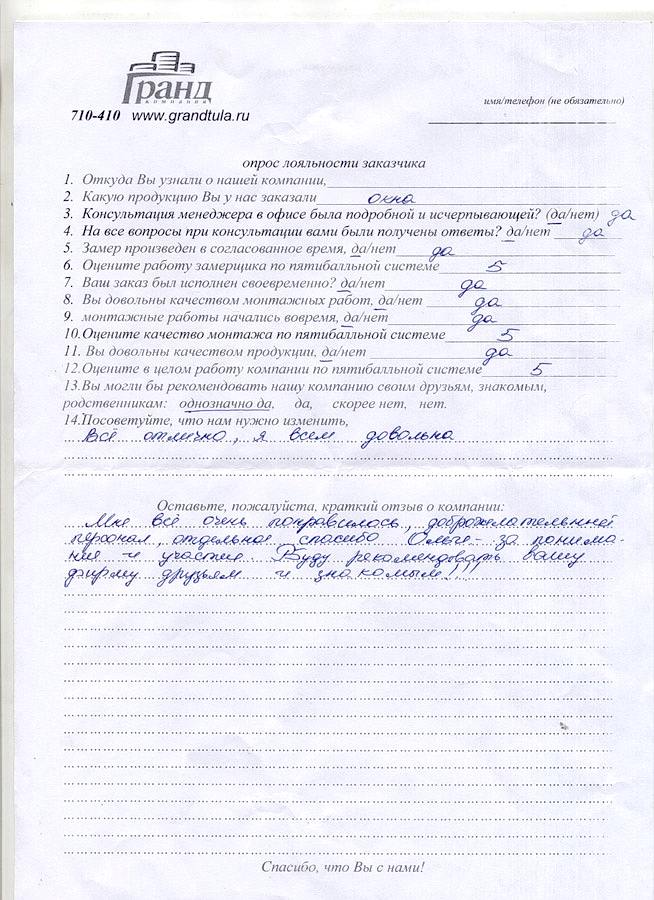 Гранд
компания
710-410 www.grandtula.ru
имя/телефон (не обязательно)
опрос лояльности заказчика
1. Откуда Вы узнали о нашей компании,
2. Какую продукцию Вы у нас заказали окна
3. Консультация менеджера в офисе была подробной и исчерпывающей? (да/нет) да
4. На все вопросы при консультации вами были получены ответы? да/нет да
5. Замер произведен в согласованное время, да/нет да
6. Оцените работу замерщика по пятибалльной системе 5
7. Ваш заказ был исполнен своевременно? да/нет да
8. Вы довольны качеством монтажных работ, да/нет да
9. монтажные работы начались вовремя, да/нет да
10.Оцените качество монтажа по пятибалльной системе 5
11. Вы довольны качеством продукции, да/нет да
12.Оцените в целом работу компании по пятибалльной системе 5
13.Вы могли бы рекомендовать нашу компанию своим друзьям, знакомым,
родственникам: однозначно да, да, скорее нет, нет.
14.Посоветуйте, что нам нужно изменить,
Всё отлично, я всем довольна
Оставьте, пожалуйста, краткий отзыв о компании:
Мне всё очень понравилось, доброжелательный
персонал, отдельное спасибо Ольге - за понима-
ние и участие. Буду рекомендовать вашу
фирму друзьям и знакомым!!!
Спасибо, что Вы с нами!